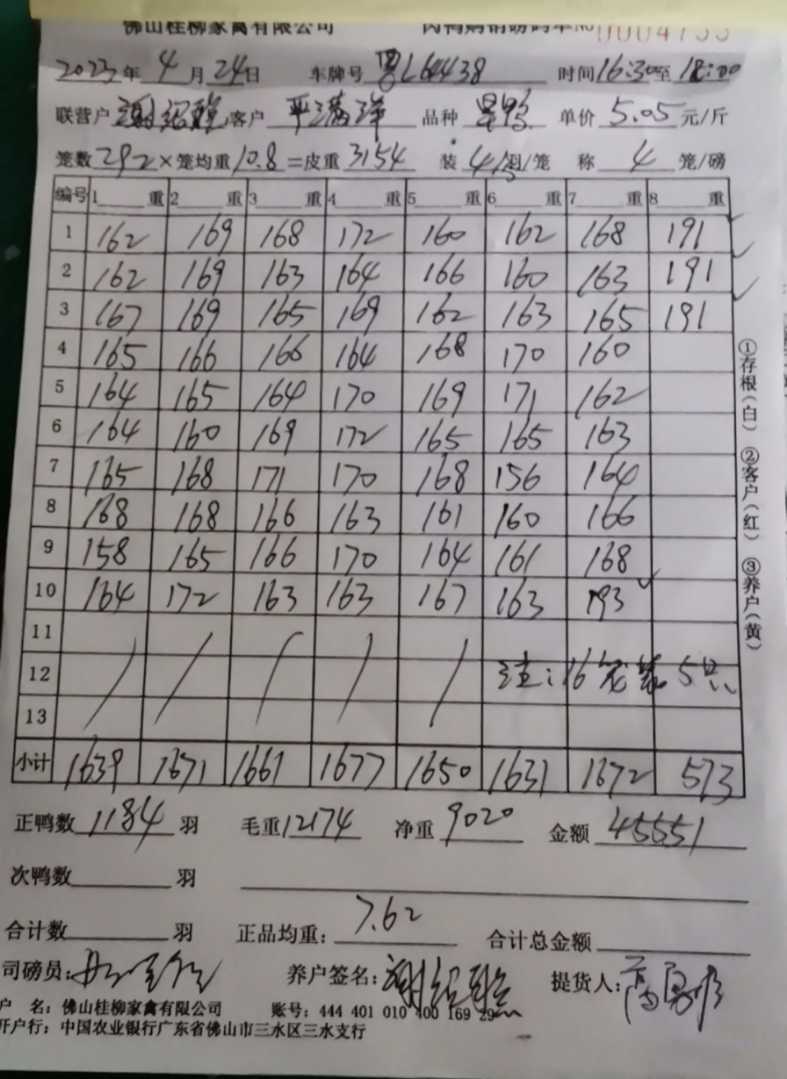 佛山桂柳家禽有限公司 肉鸭购销磅码单 № 0004755
2023年 4 月 24日 车牌号 粤L64438 时间16:30至 18:00
联营户 客户 平满洋 品种 单价 5.05 元/斤
笼数 292 × 笼均重 10.8 = 皮重 3154 装 4 羽/笼 称 4 笼/磅
编号 1 重 2 重 3 重 4 重 5 重 6 重 7 重 8 重
1 162 169 168 172 160 162 168 191
2 162 169 163 164 166 160 163 191
3 167 169 165 169 162 163 165 191
4 165 166 166 164 168 170 160
5 164 165 164 170 169 171 162
6 164 160 169 172 165 165 163
7 165 168 171 170 168 156 164
8 168 168 166 163 161 160 166
9 158 165 166 170 164 161 168
10 164 172 163 163 167 163 193
11
12 注:16笼装5只
13
小计 1639 1671 1661 1677 1650 1631 1672 573
正鸭数 1184 羽 毛重 12174 净重 9020 金额 45551
次鸭数 羽
合计数 羽 正品均重: 7.62 合计总金额
司磅员: 养户签名: 提货人:
户 名: 佛山桂柳家禽有限公司 账号: 444 401 010 400 169 29
开户行: 中国农业银行广东省佛山市三水区三水支行
①存根(白) ②客户(红) ③养户(黄)